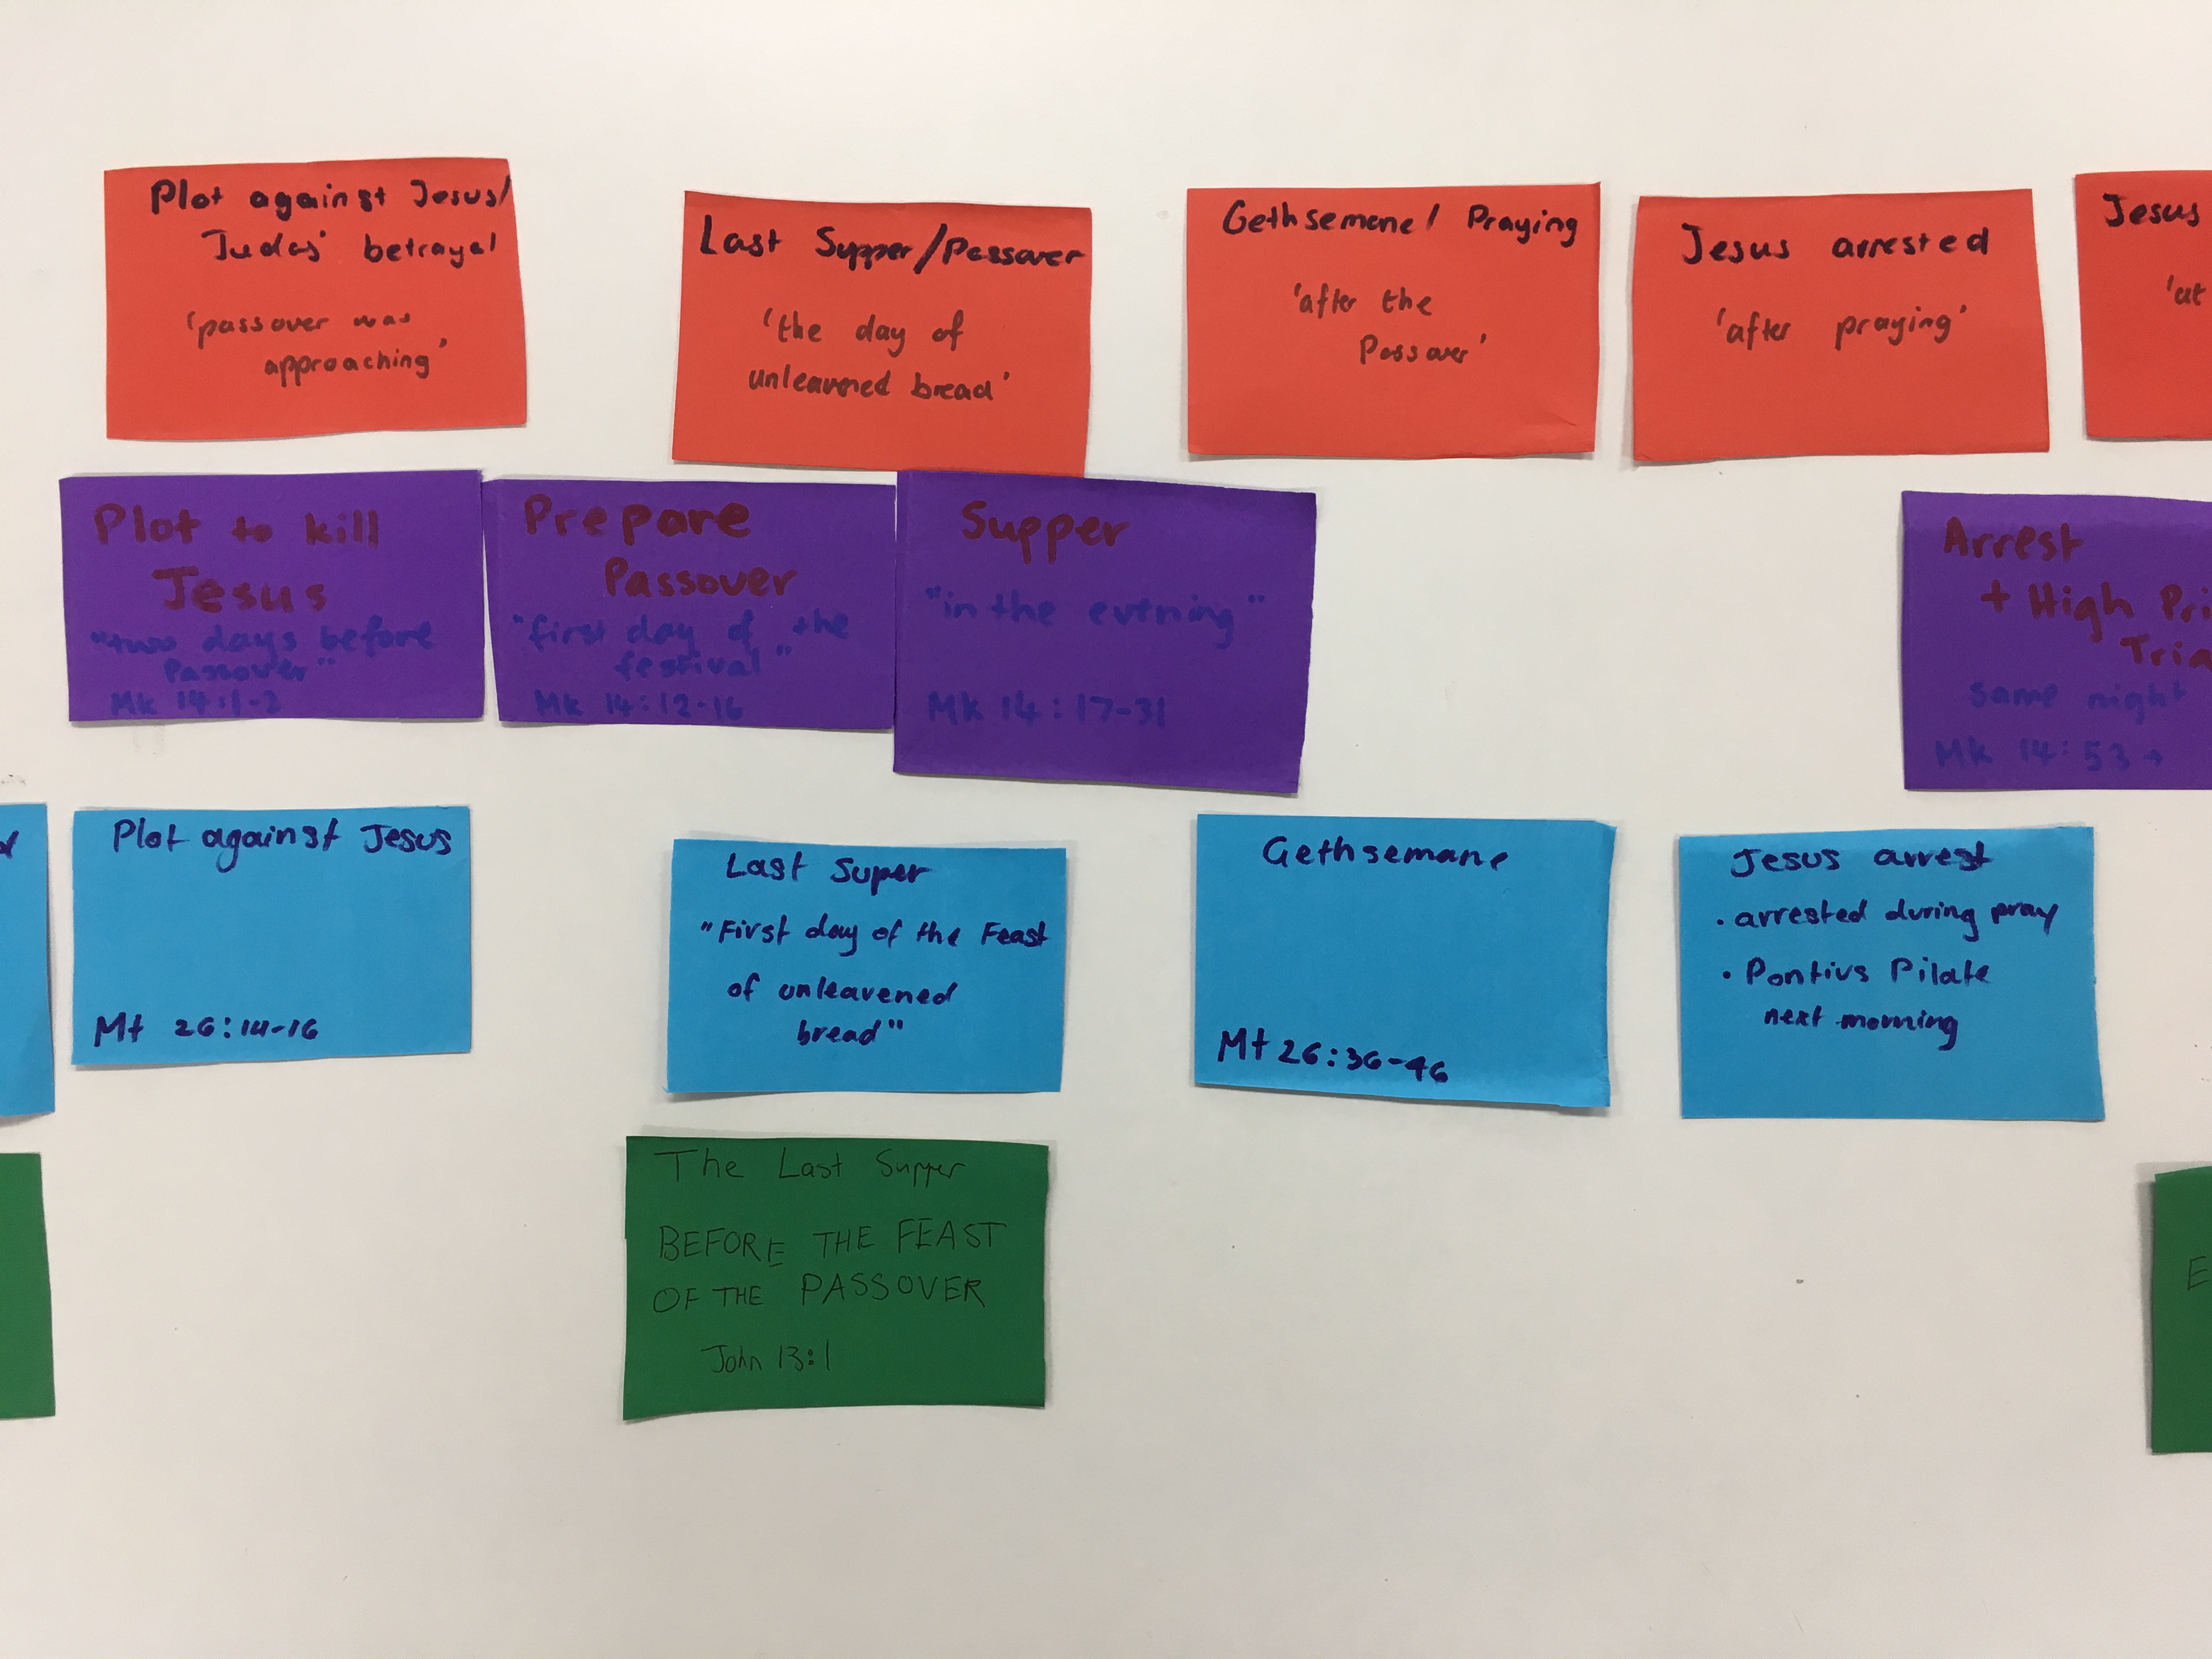 Plot against Jesus/
Judas' betrayal
'passover was
approaching'
Last Supper/Passover
'the day of
unleavened bread'
Gethsemene/ Praying
'after the
Passover'
Jesus arrested
'after praying'
Jesus
'at
Plot to kill
Jesus
"two days before
Passover"
Mk 14:1-2
Prepare
Passover
"first day of the
festival"
Mk 14:12-16
Supper
"in the evening"
Mk 14:17-31
Arrest
+ High Pri
Tria
same night
Mk 14:53→
Plot against Jesus
Mt 26:14-16
Last Super
"First day of the Feast
of unleavened
bread"
Gethsemane
Mt 26:36-46
Jesus arrest
• arrested during pray
• Pontius Pilate
next morning
The Last Supper
BEFORE THE FEAST
OF THE PASSOVER
John 13:1
E